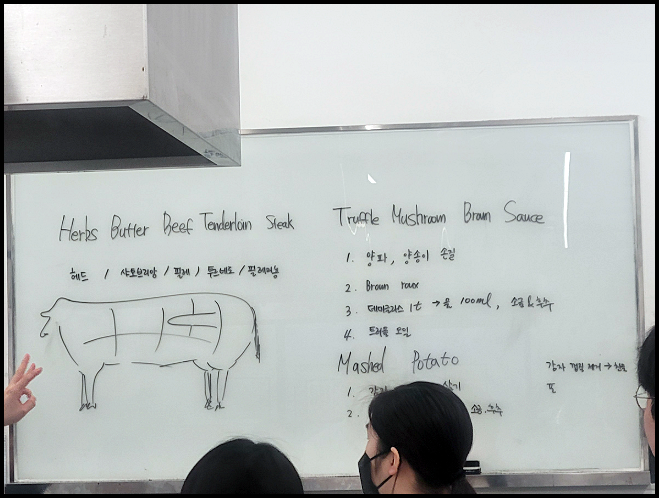 Herbs Butter Beef Tenderloin Steak
헤드 / 샤또브리앙 / 필레 / 투르네도 / 필레미뇽
Truffle Mushroom Brown Sauce
1. 양파, 양송이 손질
2. Brown roux
3. 데미글라스 1t → 물 100ml, 소금&후추
4. 트러플 오일
Mashed Potato
감자 껍질 제거 →
1. 감자 삶기
2. 소금, 후추